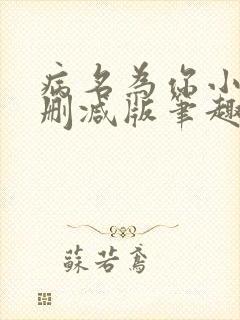 病名为你小
删减版笔趣
蘇若鸢